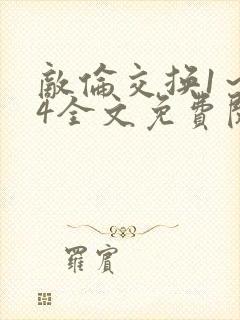 敵倫交换1～
4全文免費閱
羅賓